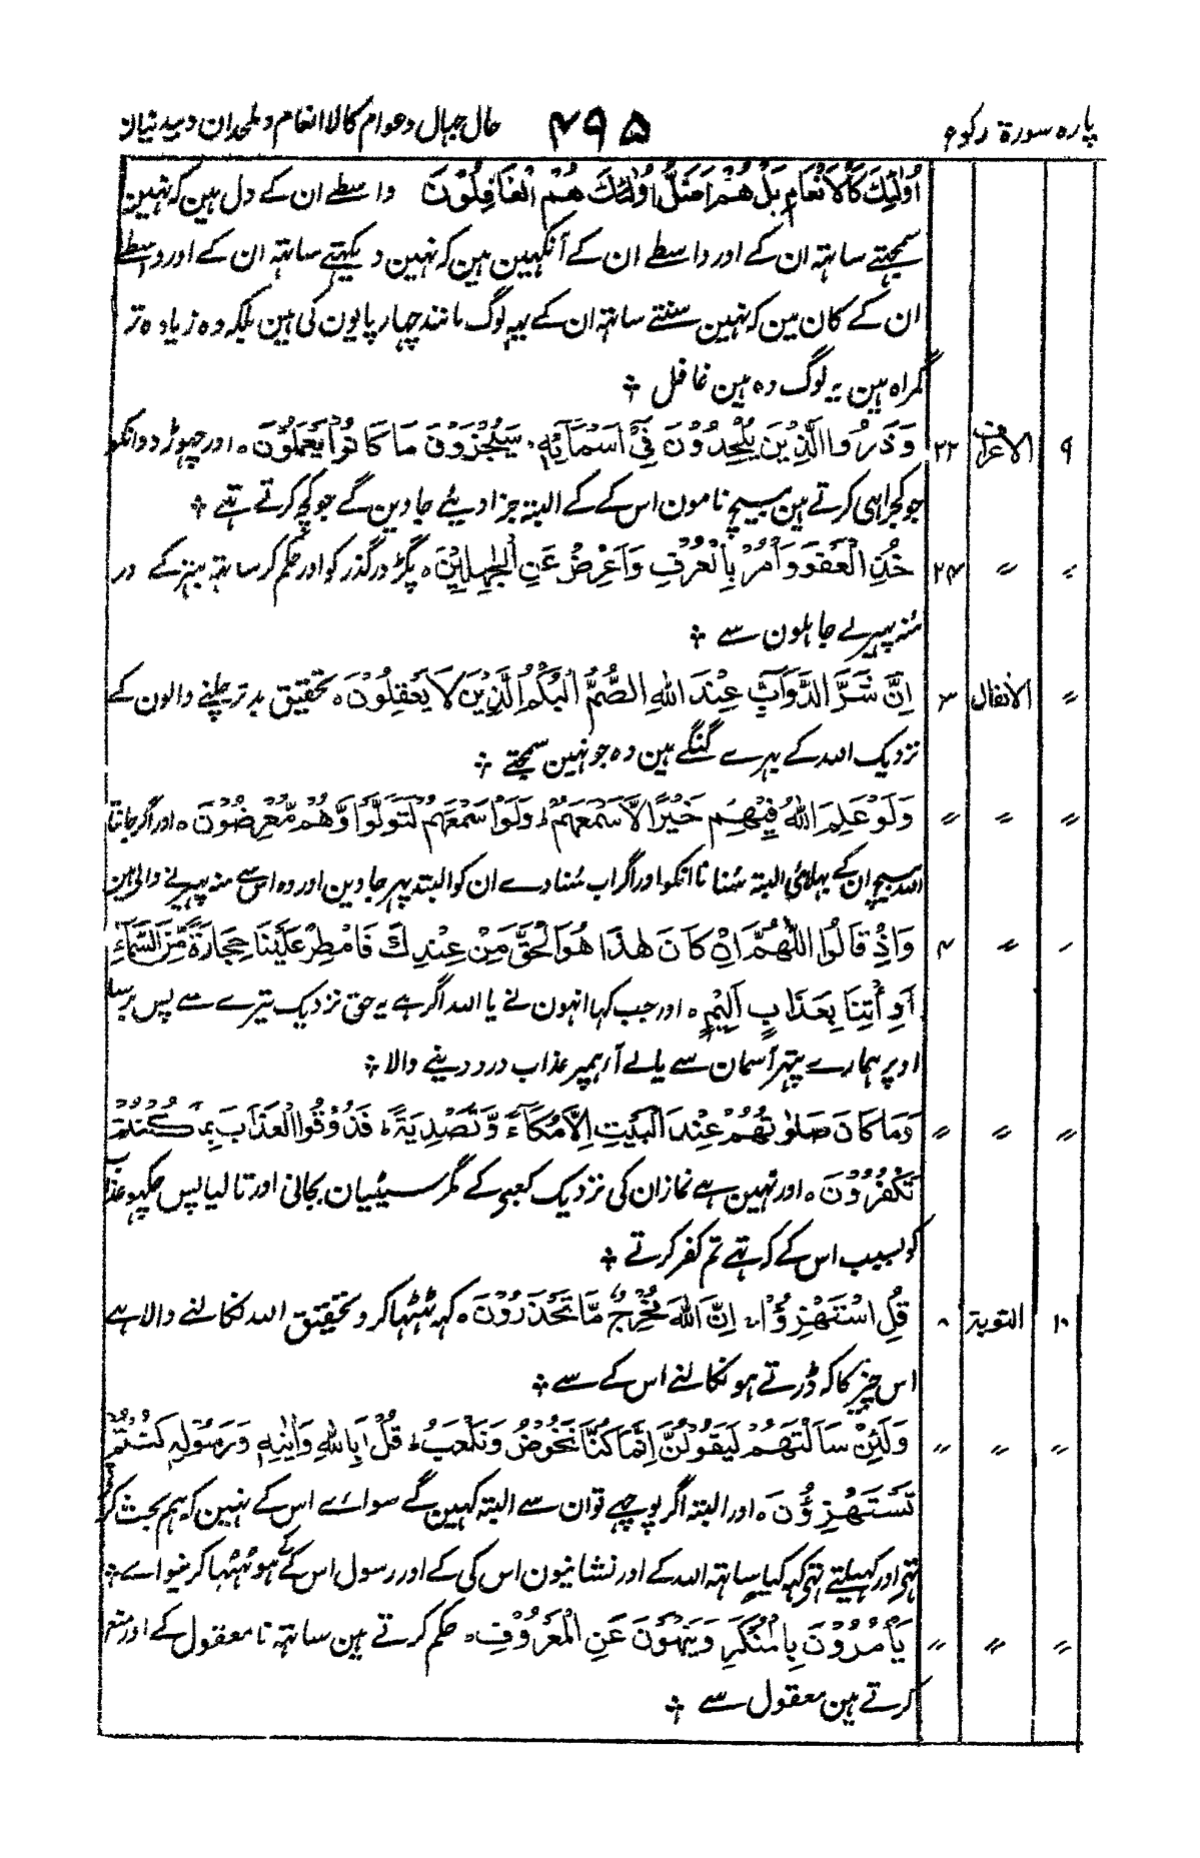 پارہ سورۃ رکوع ۴۹۵ حال جہال وعوام کالانعام وملحدان وبیدینان
اُولٰٓئِكَ كَالْاَنْعَامِ بَلْ هُمْ اَضَلُّ اُولٰٓئِكَ هُمُ الْغَافِلُوْنَ واسطے ان کے دل ہین کہ نہین
سمجہتے ساتہہ ان کے اور واسطے ان کے آنکہین ہین کہ نہین دیکہتے ساتہہ ان کے اور واسطے
ان کے کان ہین کہ نہین سنتے ساتہہ ان کے یہہ لوگ مانند چہار پایون کی ہین بلکہ وہ زیادہ تر
گمراہ ہین یہ لوگ وہ ہین غافل ÷
۹ الاعراف ۲۲ وَذَرُوا الَّذِيْنَ يُلْحِدُوْنَ فِيْٓ اَسْمَآئِهٖ سَيُجْزَوْنَ مَا كَانُوْا يَعْمَلُوْنَ ہ اور چہوڑ دو انکو
جو کجراہی کرتے ہین بیچ نامون اس کے کے البتہ جزا دیئے جاوین گے جو کچہ کرتے تہے ÷
〃 〃 ۲۴ خُذِ الْعَفْوَ وَاْمُرْ بِالْعُرْفِ وَاَعْرِضْ عَنِ الْجٰهِلِيْنَ ہ پکڑ درگذر کو اور حکم کر ساتہہ بہتر کے ور
منہ پہیرلے جاہلون سے ÷
〃 الانفال ۳ اِنَّ شَرَّ الدَّوَآبِّ عِنْدَ اللّٰهِ الصُّمُّ الْبُكْمُ الَّذِيْنَ لَا يَعْقِلُوْنَ ہ تحقیق بدتر چلنے والون کے
نزدیک اللہ کے بہرے گنگے ہین وہ جو نہین سمجہتے ÷
〃 〃 〃 وَلَوْ عَلِمَ اللّٰهُ فِيْهِمْ خَيْرًا لَّاَسْمَعَهُمْ ط وَلَوْ اَسْمَعَهُمْ لَتَوَلَّوْا وَّهُمْ مُّعْرِضُوْنَ ہ اور اگر جانتا
اللہ بیچ ان کے بہلائی البتہ سُناتا انکو اور اگر اب سُنادے ان کو البتہ پہر جاوین اور وہ اس سے منہ پہیرنے والی ہین
〃 〃 ۴ وَاِذْ قَالُوا اللّٰهُمَّ اِنْ كَانَ هٰذَا هُوَ الْحَقَّ مِنْ عِنْدِكَ فَاَمْطِرْ عَلَيْنَا حِجَارَةً مِّنَ السَّمَآءِ
اَوِ ائْتِنَا بِعَذَابٍ اَلِيْمٍ ہ اور جب کہا انہون نے یا اللہ اگر ہے یہ حق نزدیک تیرے سے پس برسا
اوپر ہمارے پتہر آسمان سے یا لے آ ہمپر عذاب درد دینے والا ÷
〃 〃 〃 وَمَا كَانَ صَلٰوتُهُمْ عِنْدَ الْبَيْتِ اِلَّا مُكَآءً وَّتَصْدِيَةً ط فَذُوْقُوا الْعَذَابَ بِمَا كُنْتُمْ
تَكْفُرُوْنَ ہ اور نہین ہے نماز ان کی نزدیک کعبی کے مگر سیٹیان بجانی اور تالیا پس چکہو عذاب
کو بسبب اس کے کہ تہے تم کفر کرتے ÷
۱۰ التوبۃ ۸ قُلِ اسْتَهْزِءُوْا ج اِنَّ اللّٰهَ مُخْرِجٌ مَّا تَحْذَرُوْنَ ہ کہہ ٹہٹہا کرو تحقیق اللہ نکالنے والا ہے
اس چیز کا کہ ڈرتے ہو نکالنے اس کے سے ÷
〃 〃 〃 وَلَئِنْ سَاَلْتَهُمْ لَيَقُوْلُنَّ اِنَّمَا كُنَّا نَخُوْضُ وَنَلْعَبُ ط قُلْ اَبِاللّٰهِ وَاٰيٰتِهٖ وَرَسُوْلِهٖ كُنْتُمْ
تَسْتَهْزِءُوْنَ ہ اور البتہ اگر پوچہے تو ان سے البتہ کہین گے سوائے اس کے نہین کہ ہم بحث کرتے
تہی اور کہیلتے تہی کہہ کیا ساتہہ اللہ کے اور نشانیون اس کی کے اور رسول اس کے کے ہو ٹہٹہا کرنیوالے ÷
〃 〃 〃 يَاْمُرُوْنَ بِالْمُنْكَرِ وَيَنْهَوْنَ عَنِ الْمَعْرُوْفِ ہ حکم کرتے ہین ساتہہ نامعقول کے اور منع
کرتے ہین معقول سے ÷